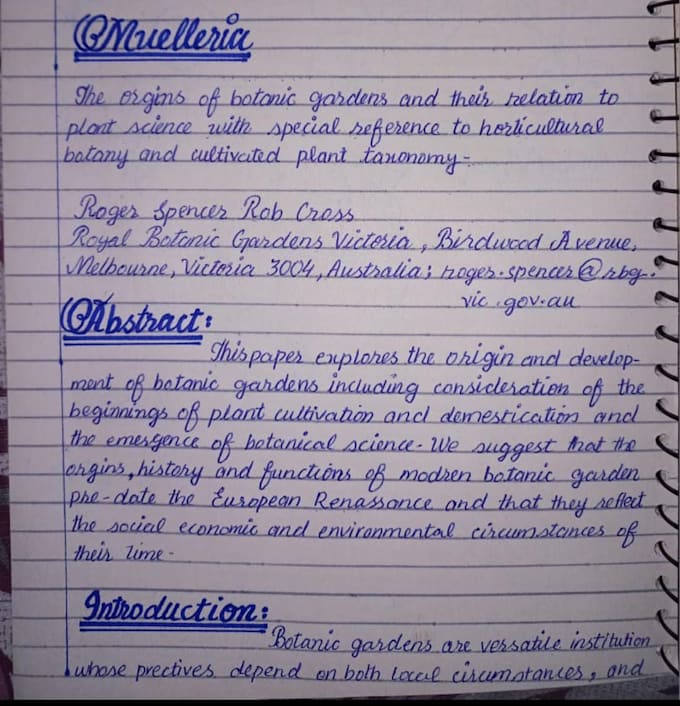 Muelleria
The orgins of botanic gardens and their relation to
plant science with special reference to horticultural
botany and cultivated plant taxonomy-
Roger Spencer Rob Cross
Royal Botanic Gardens Victoria, Birdwood Avenue,
Melbourne, Victoria 3004, Australia; roger.spencer@rbg.
vic.gov.au
Abstract:
This paper explores the origin and develop-
ment of botanic gardens including consideration of the
beginnings of plant cultivation and domestication and
the emergence of botanical science. We suggest that the
orgins, history and functions of modren botanic garden
pre-date the European Renassance and that they reflect
the social economic and environmental circumstances of
their time-
Introduction:
Botanic gardens are versatile institution
whose prectives depend on both local circumstances, and